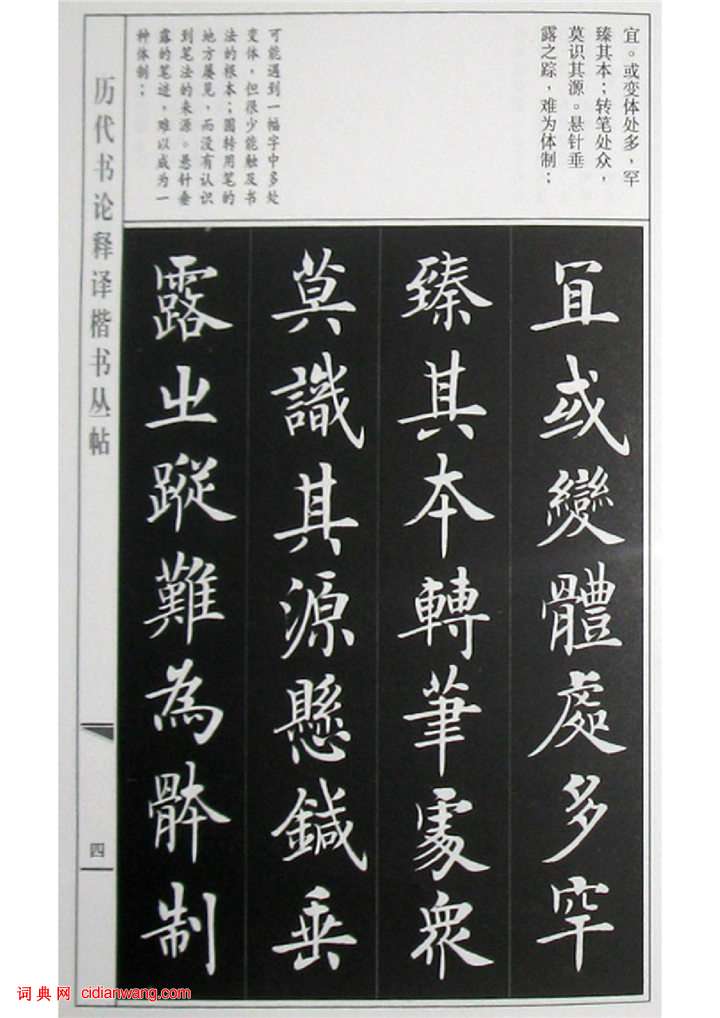 宜。或变体处多，罕
臻其本；转笔处众，
莫识其源。悬针垂
露之踪，难为体制；
可能遇到一幅字中多处
变体，但很少能触及书
法的根本；圆转用笔的
地方屡见，而没有认识
到笔法的来源。悬针垂
露的笔迹，难以成为一
种体制；
冝或變體處多罕
臻其本轉筆處眾
莫識其源懸鍼垂
露之蹤難為骵制
历代书论释译楷书丛帖
四
词典网 cidianwang.com